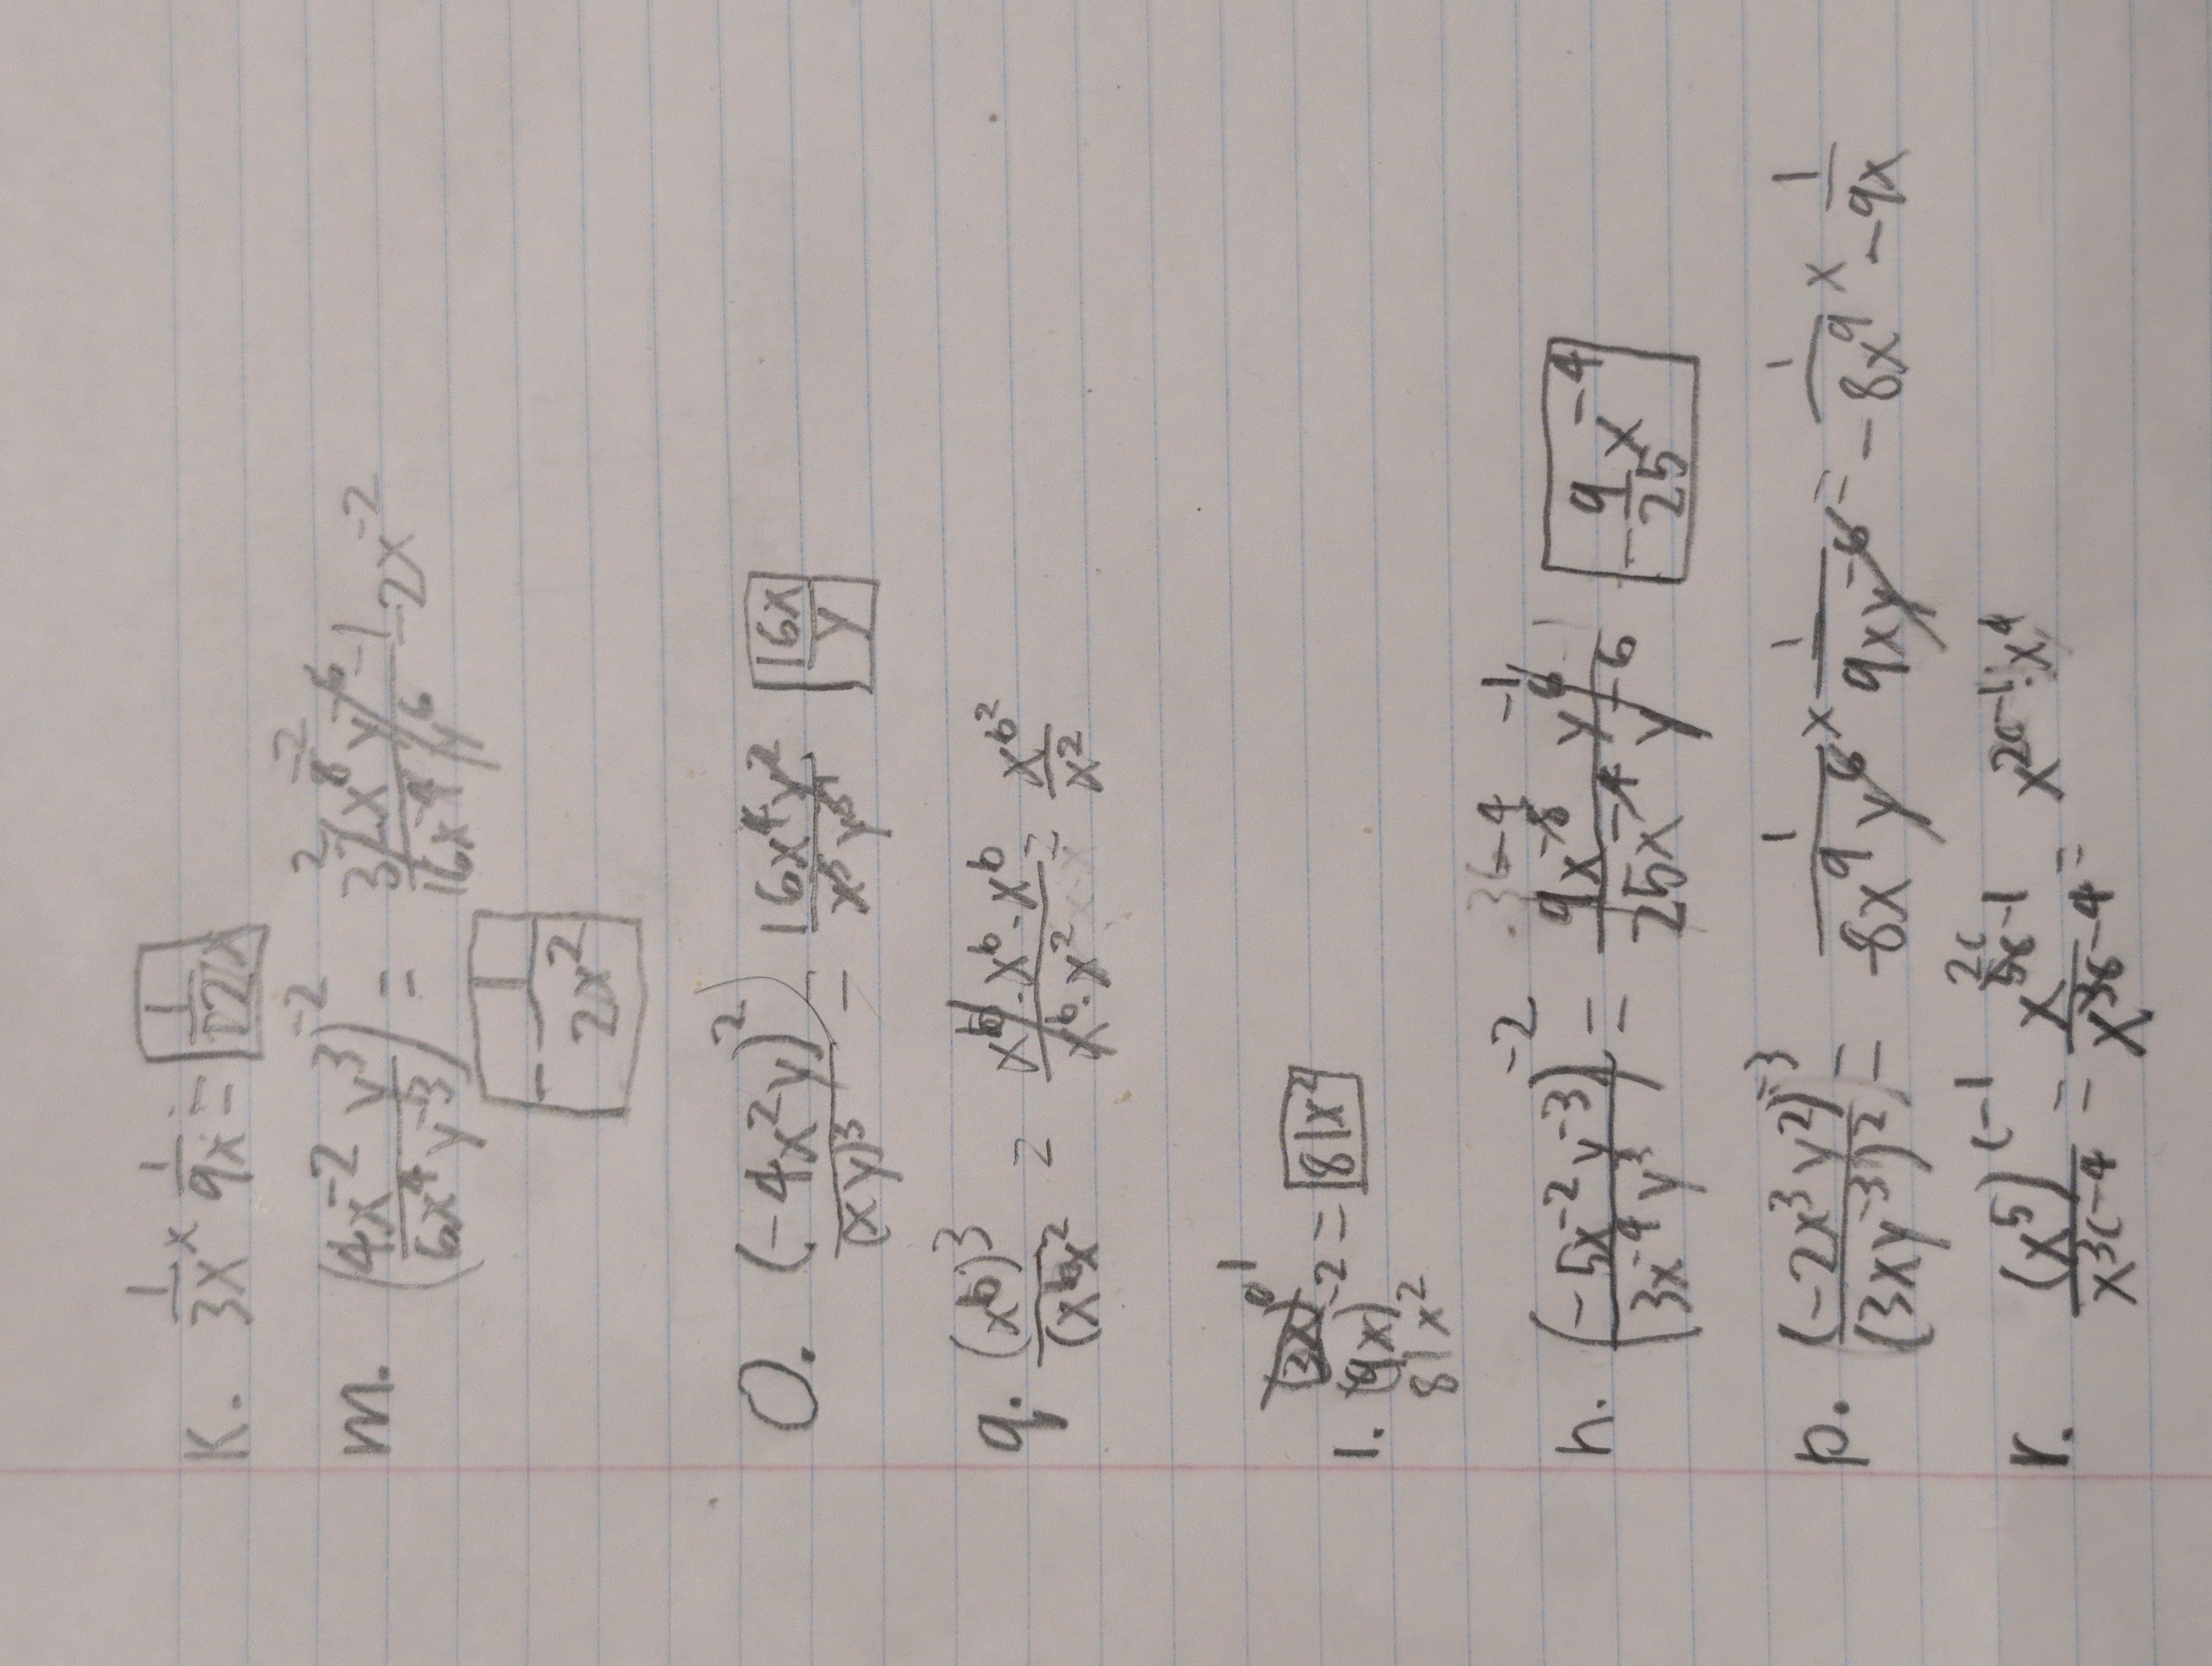 K. 1/3x × 1/9x = 1/12x
m. (4x⁻² y³ / 6x⁴ y⁻³)⁻² = 32x⁸y⁻⁶ / 16x⁻⁴y⁶ 2 -2 -1 -2x⁻²
- 1/2x²
O. (-4x²y)² / (xy)³ = 16x⁴y² / x³y³ 1 16x/y
q. (xᵇ)³ / (xᵇx² = xᵇ · xᵇ · xᵇ / xᵇ · x² = xᵇ² / x²
(3x)⁰ 1
l. (9x)⁻² = 81x²
81x²
n. (-5x⁻² y⁻³ / 3x⁻⁴ y³)⁻² = 9x⁻⁸ y⁶ / 25x⁻⁴ y⁻⁶ -4 -1 - 9/25 x⁻⁴
p. (-2x³ y²)⁻³ / (3xy⁻³)² = 1/-8x⁹y⁶ × 1/9xy⁻⁶ = 1/-8x⁹ × 1/-9x
r. (x⁵)ᶜ⁻¹ / x³ᶜ⁻⁴ = x⁵ᶜ⁻¹ / x³ᶜ⁻⁴ 2c = x²ᶜ⁻¹ · x⁴